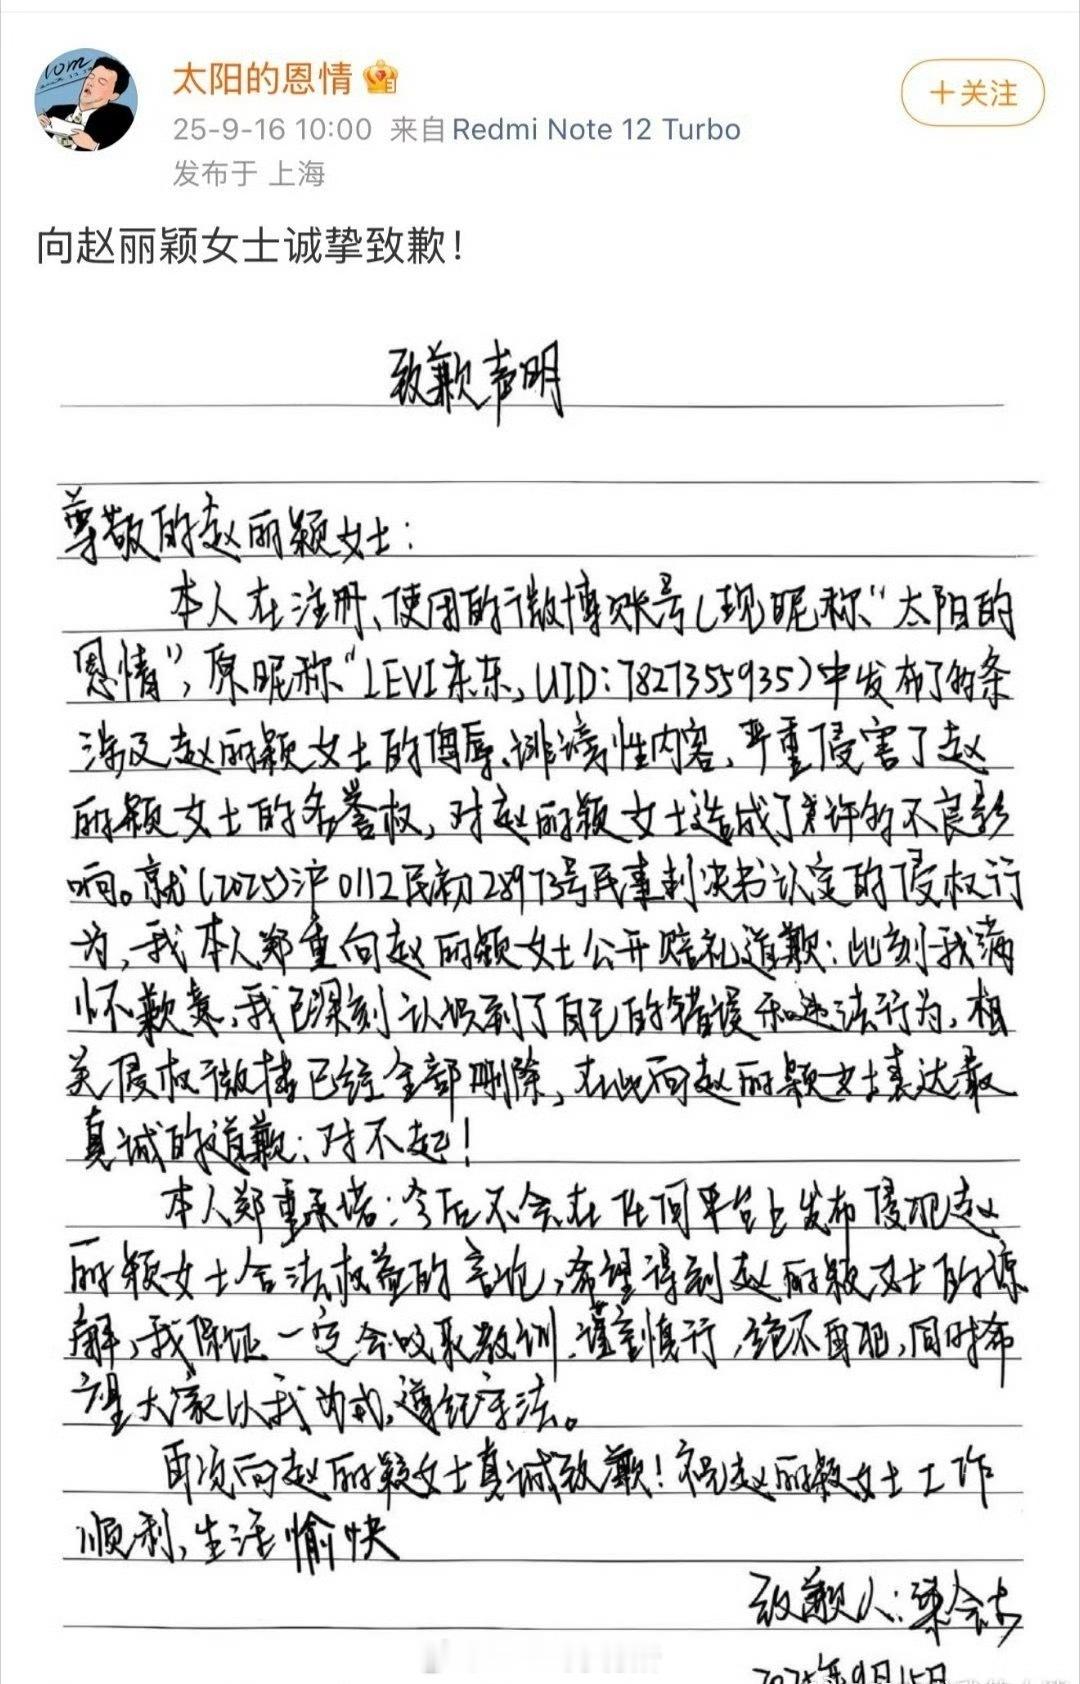 太阳的恩情
25-9-16 10:00 来自 Redmi Note 12 Turbo
发布于 上海
+关注
向赵丽颖女士诚挚致歉！
致歉声明
尊敬的赵丽颖女士：
本人在注册、使用的微博账号(现昵称“太阳的
恩情”，原昵称“LEVI东东，UID:7827355935)中发布了多条
涉及赵丽颖女士的侮辱、诽谤性内容，严重侵害了赵
丽颖女士的名誉权，对赵丽颖女士造成了某许的不良影
响。就(2025)沪0112民初28973号民事判决书认定的侵权行
为，我本人郑重向赵丽颖女士公开赔礼道歉：此刻我满
怀歉意，我已深刻认识到了自己的错误和违法行为，相
关侵权微博已经全部删除，在此向赵丽颖女士表达最
真诚的道歉：对不起！
本人郑重承诺：今后不会在任何平台上发布侵犯赵
丽颖女士合法权益的言论，希望得到赵丽颖女士的谅
解，我保证一定会吸取教训、谨言慎行，绝不再犯，同时希
望大家以我为戒，遵纪守法。
再次向赵丽颖女士真诚致歉！祝赵丽颖女士工作
顺利，生活愉快
致歉人：梁会
2025年9月15日